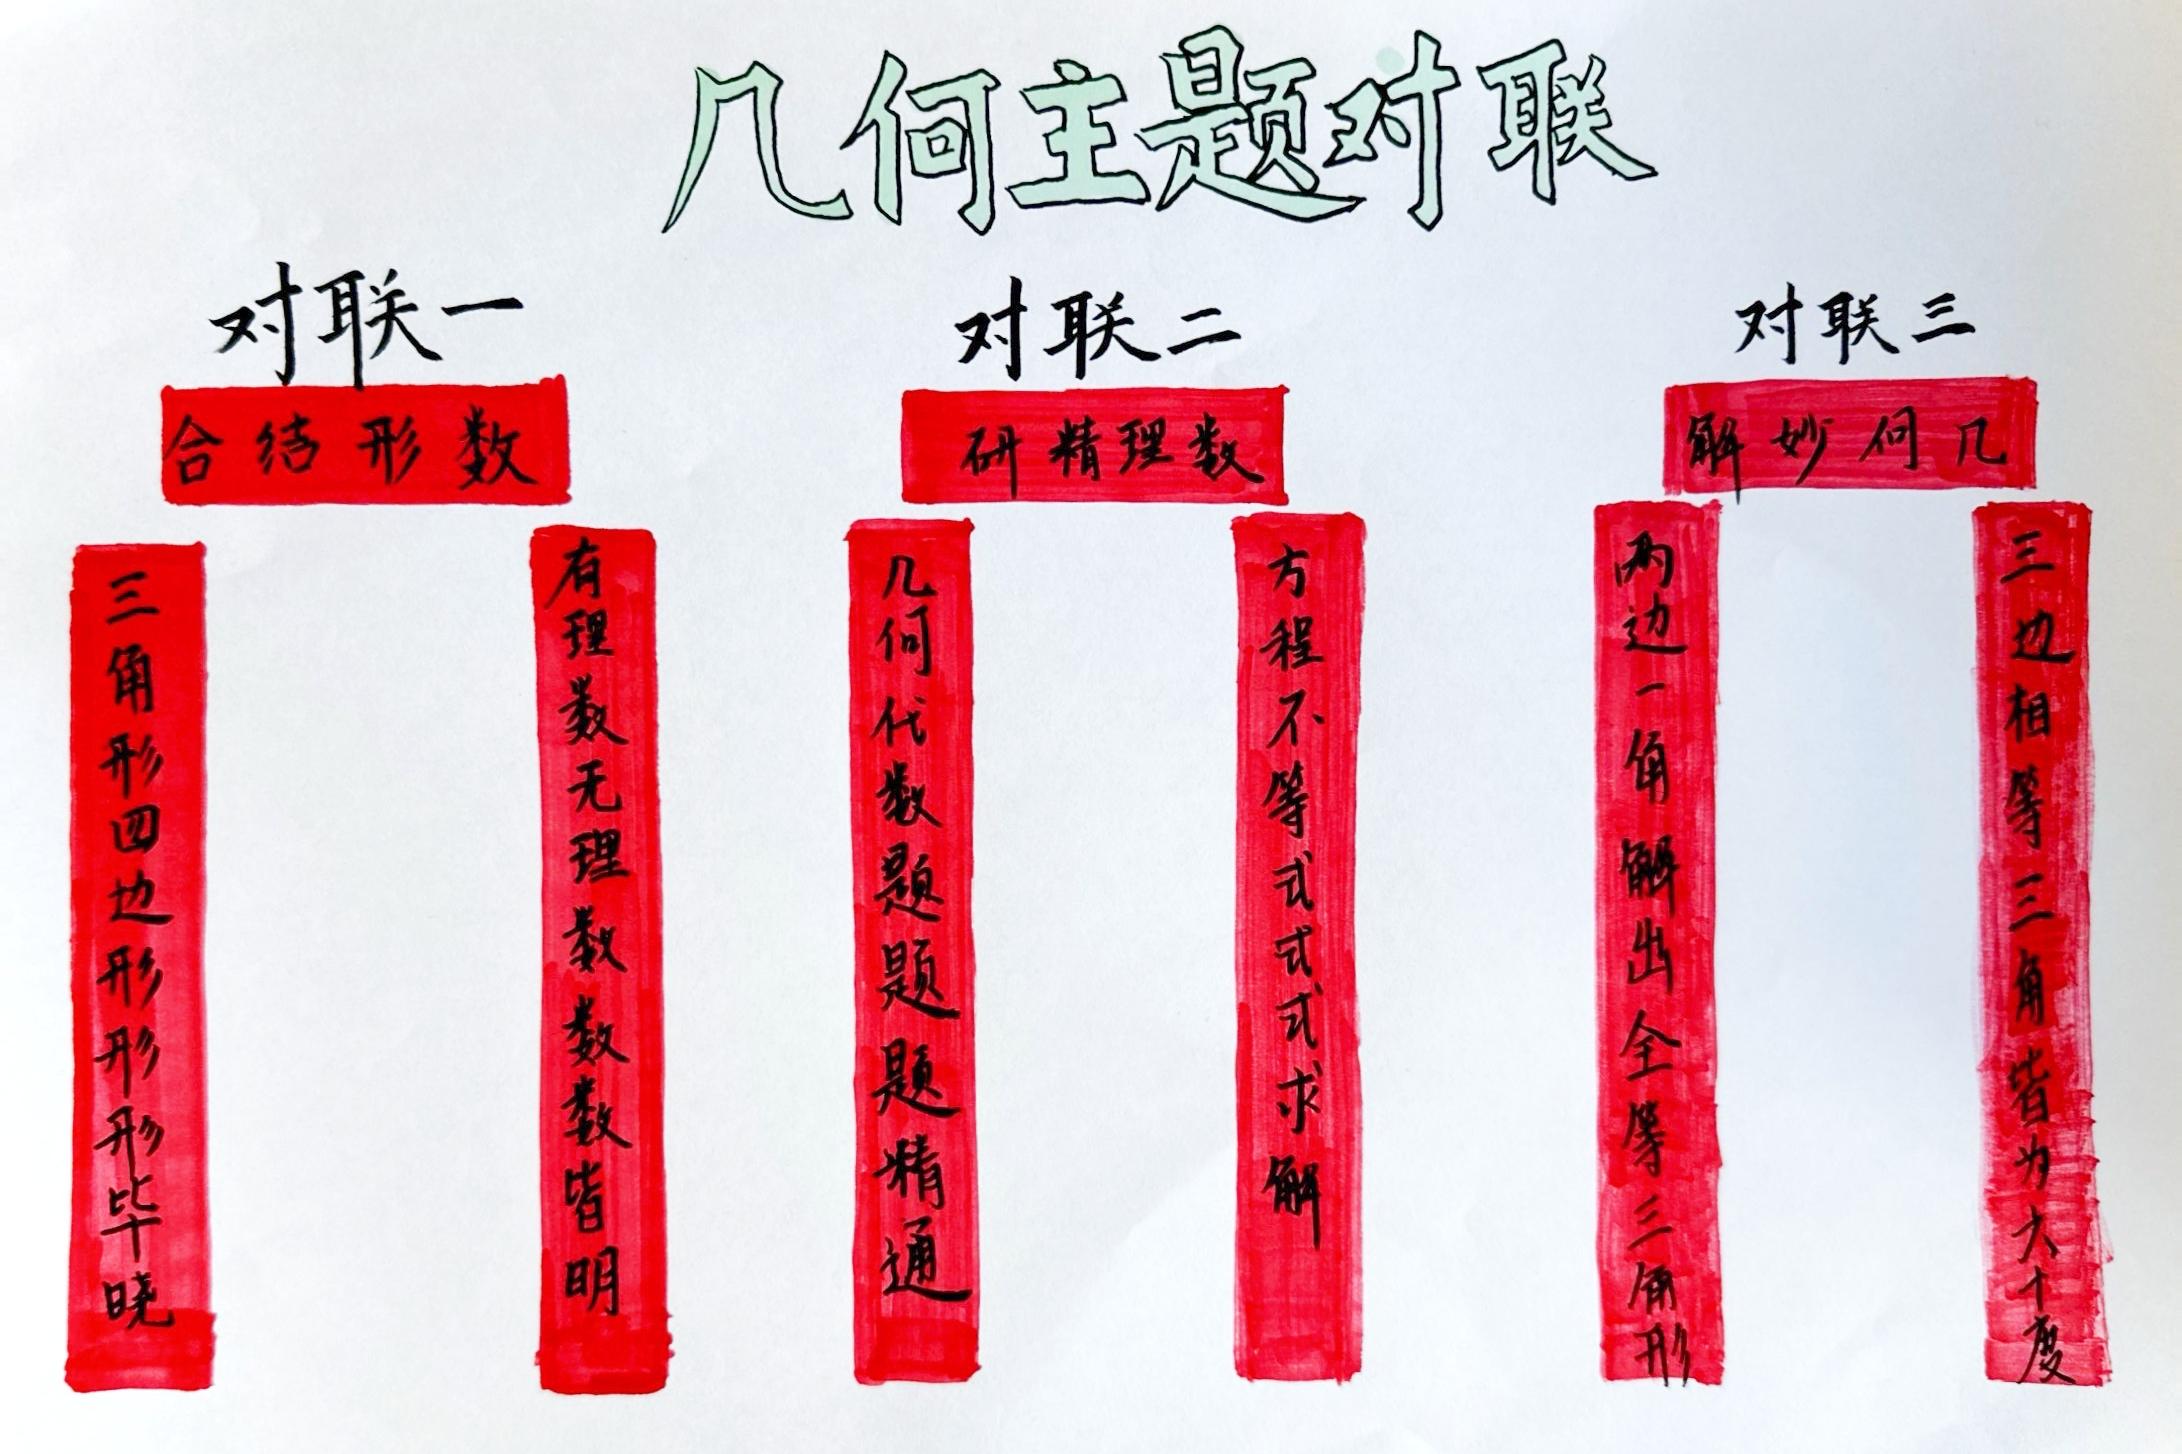 几何主题对联
对联一
数形结合
有理数无理数数数皆明
三角形四边形形形毕晓
对联二
数理精研
方程不等式式式求解
几何代数题题题精通
对联三
几何妙解
三边相等三角皆为六十度
两边一角解出全等三角形